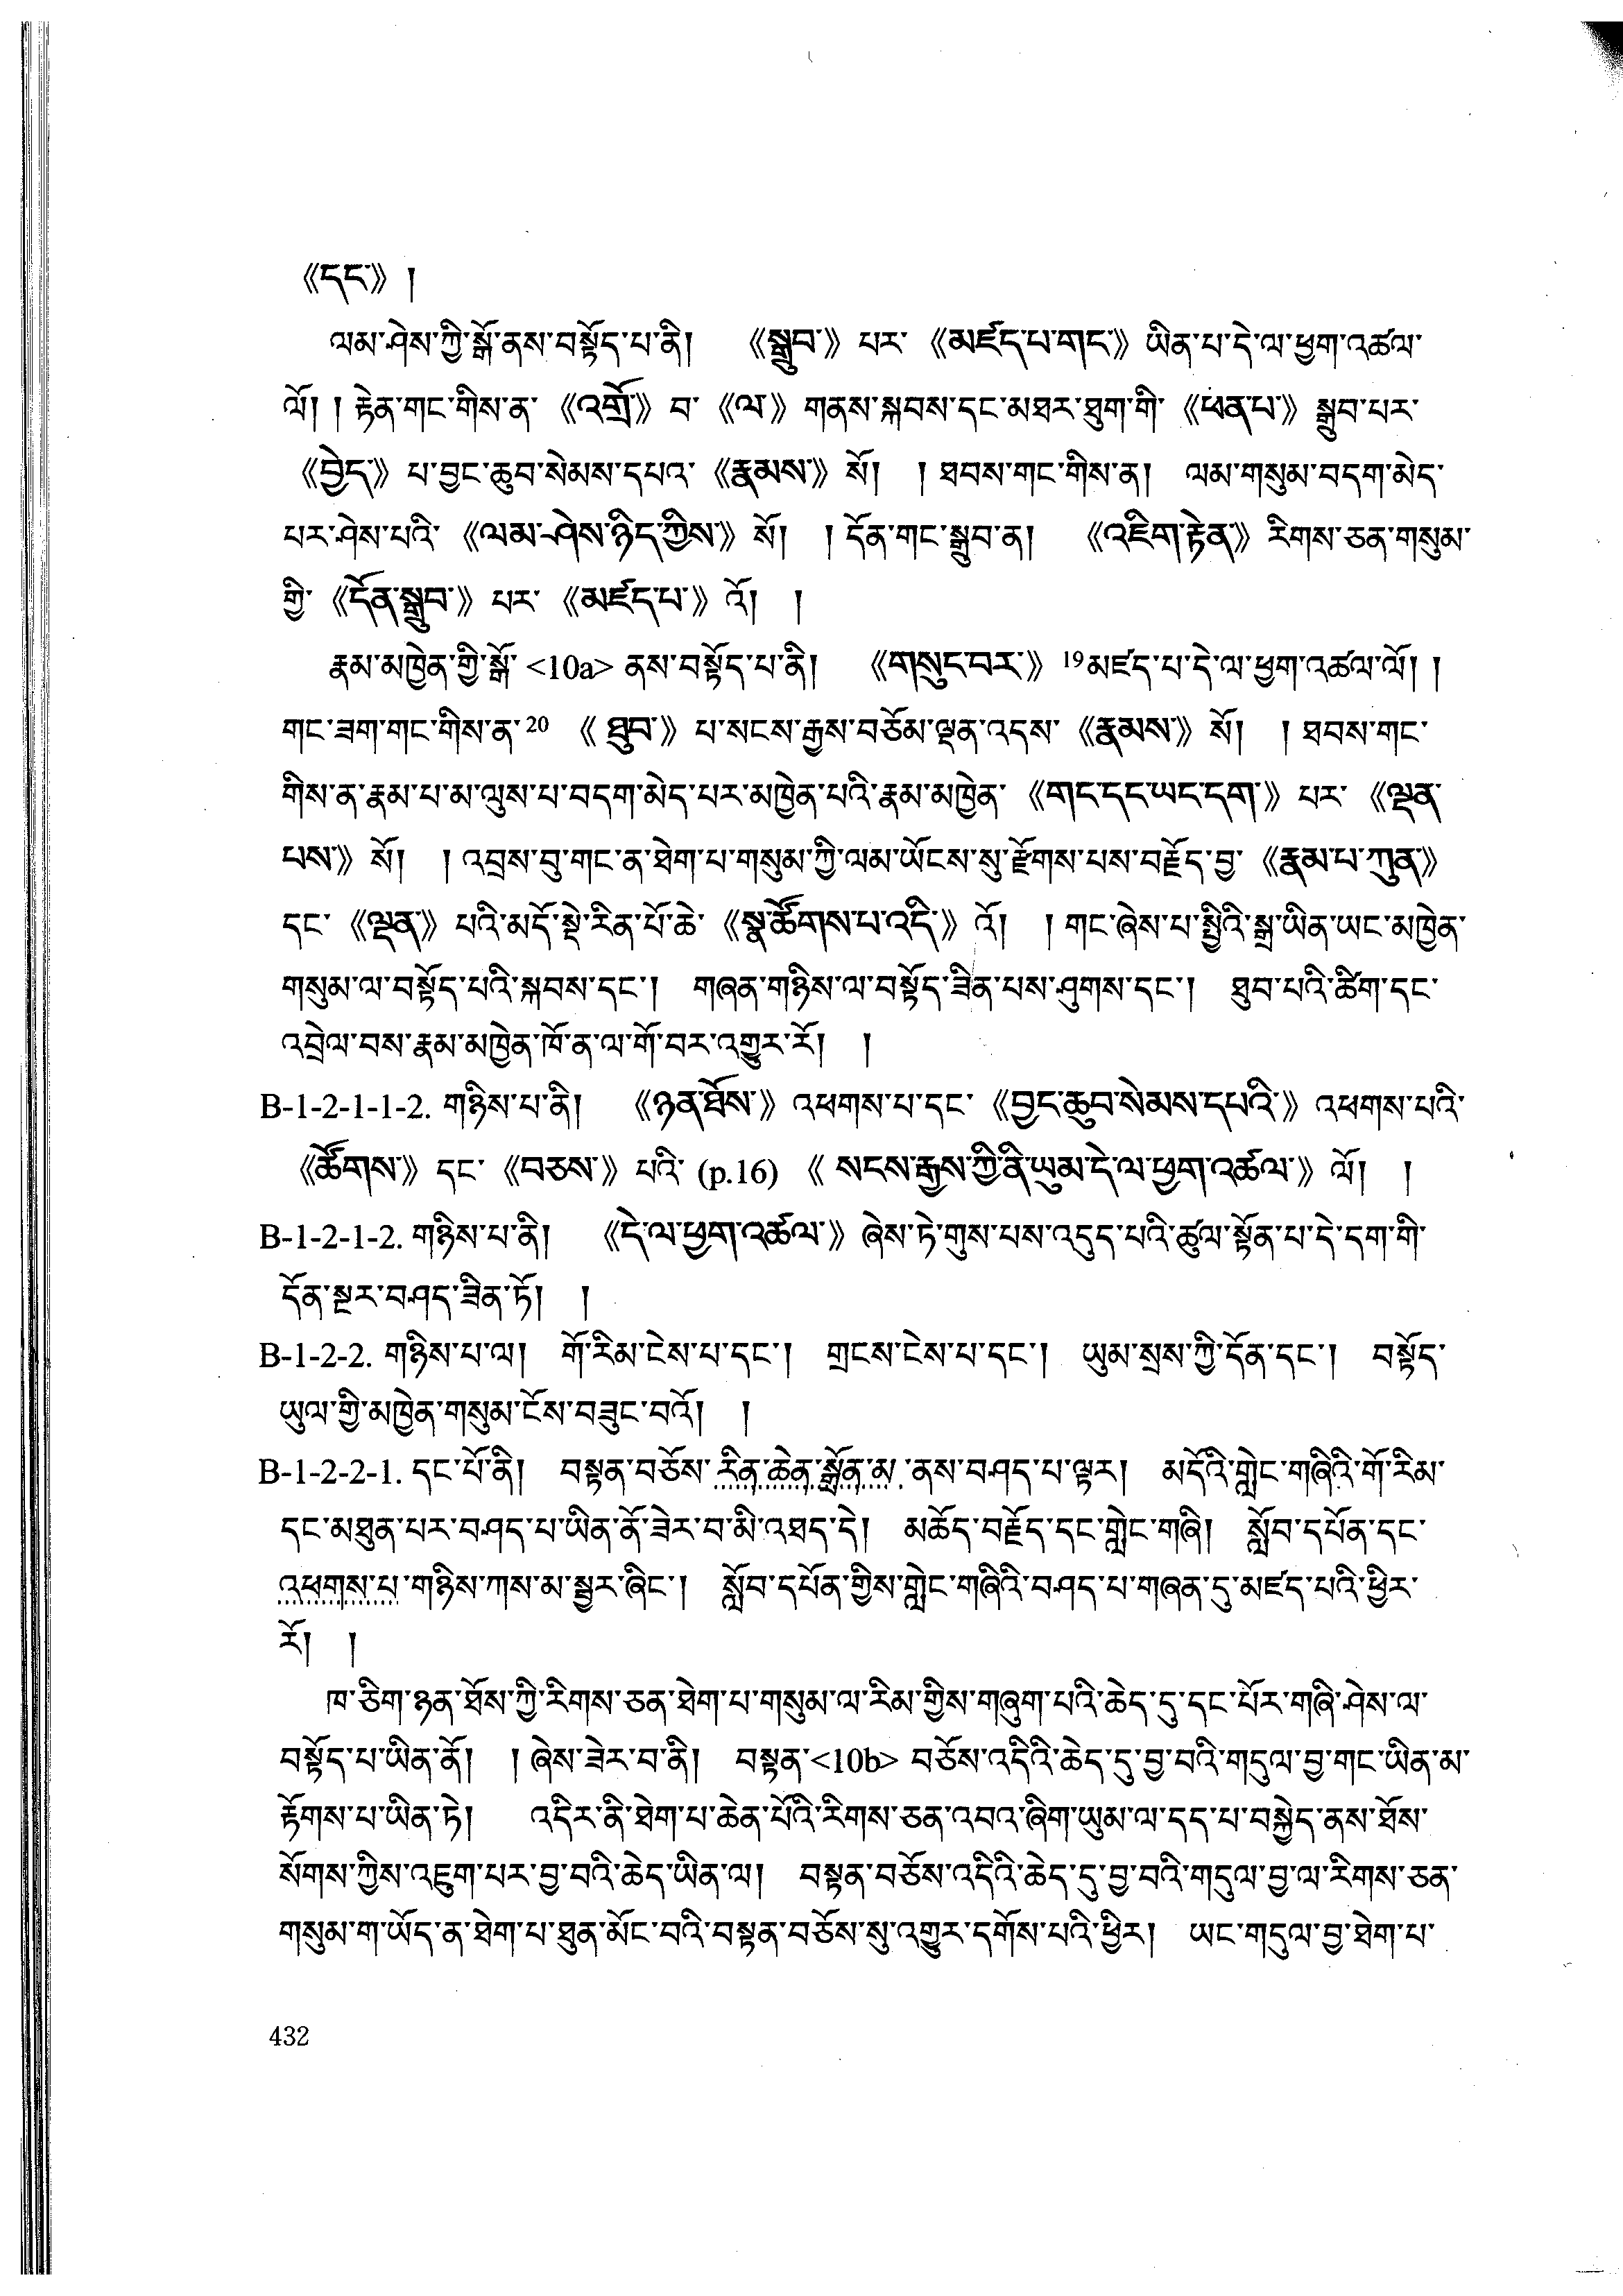 《དང་》 །
ལམ་ཤེས་ཀྱི་སྒོ་ནས་བསྟོད་པ་ནི། 《སྒྲུབ་》 པར་ 《མཛད་པ་གང་》 ཡིན་པ་དེ་ལ་ཕྱག་འཚལ་
ལོ། ། རྟེན་གང་གིས་ན་ 《འགྲོ་》 བ་ 《ལ་》 གནས་སྐབས་དང་མཐར་ཐུག་གི་ 《ཕན་པ་》 སྒྲུབ་པར་
《བྱེད་》 པ་བྱང་ཆུབ་སེམས་དཔའ་ 《རྣམས་》 སོ། ། ཐབས་གང་གིས་ན། ལམ་གསུམ་བདག་མེད་
པར་ཤེས་པའི་ 《ལམ་ཤེས་ཉིད་ཀྱིས་》 སོ། ། དོན་གང་སྒྲུབ་ན། 《འཇིག་རྟེན་》 རིགས་ཅན་གསུམ་
གྱི་ 《དོན་སྒྲུབ་》 པར་ 《མཛད་པ་》 འོ། །
རྣམ་མཁྱེན་གྱི་སྒོ་ <10a> ནས་བསྟོད་པ་ནི། 《གསུང་བར་》 19མཛད་པ་དེ་ལ་ཕྱག་འཚལ་ལོ། །
གང་ཟག་གང་གིས་ན་20 《 ཐུབ་》 པ་སངས་རྒྱས་བཅོམ་ལྡན་འདས་ 《རྣམས་》 སོ། ། ཐབས་གང་
གིས་ན་རྣམ་པ་མ་ལུས་པ་བདག་མེད་པར་མཁྱེན་པའི་རྣམ་མཁྱེན་ 《གང་དང་ཡང་དག་》 པར་ 《ལྡན་
པས་》 སོ། ། འབྲས་བུ་གང་ན་ཐེག་པ་གསུམ་ཀྱི་ལམ་ཡོངས་སུ་རྫོགས་པས་བརྗོད་བྱ་ 《རྣམ་པ་ཀུན་》
དང་ 《ལྡན་》 པའི་མདོ་སྡེ་རིན་པོ་ཆེ་ 《སྣ་ཚོགས་པ་འདི་》 འོ། ། གང་ཞེས་པ་སྤྱིའི་སྒྲ་ཡིན་ཡང་མཁྱེན་
གསུམ་ལ་བསྟོད་པའི་སྐབས་དང་། གཞན་གཉིས་ལ་བསྟོད་ཟིན་པས་ཤུགས་དང་། ཐུབ་པའི་ཚིག་དང་
འབྲེལ་བས་རྣམ་མཁྱེན་ཁོ་ན་ལ་གོ་བར་འགྱུར་རོ། །
B-1-2-1-1-2. གཉིས་པ་ནི། 《ཉན་ཐོས་》 འཕགས་པ་དང་ 《བྱང་ཆུབ་སེམས་དཔའི་》 འཕགས་པའི་
《ཚོགས་》 དང་ 《བཅས་》 པའི་ (p.16) 《 སངས་རྒྱས་ཀྱི་ནི་ཡུམ་དེ་ལ་ཕྱག་འཚལ་》 ལོ། །
B-1-2-1-2. གཉིས་པ་ནི། 《དེ་ལ་ཕྱག་འཚལ་》 ཞེས་ཏེ་གུས་པས་འདུད་པའི་ཚུལ་སྟོན་པ་དེ་དག་གི་
དོན་སྔར་བཤད་ཟིན་ཏོ། །
B-1-2-2. གཉིས་པ་ལ། གོ་རིམ་ངེས་པ་དང་། གྲངས་ངེས་པ་དང་། ཡུམ་སྲས་ཀྱི་དོན་དང་། བསྟོད་
ཡུལ་གྱི་མཁྱེན་གསུམ་ངོས་བཟུང་བའོ། །
B-1-2-2-1. དང་པོ་ནི། བསྟན་བཅོས་རིན་ཆེན་སྒྲོན་མ་ནས་བཤད་པ་ལྟར། མདོའི་གླེང་གཞིའི་གོ་རིམ་
དང་མཐུན་པར་བཤད་པ་ཡིན་ནོ་ཟེར་བ་མི་འཐད་དེ། མཆོད་བརྗོད་དང་གླེང་གཞི། སློབ་དཔོན་དང་
འཕགས་པ་གཉིས་ཀས་མ་སྦྱར་ཞིང་། སློབ་དཔོན་གྱིས་གླེང་གཞིའི་བཤད་པ་གཞན་དུ་མཛད་པའི་ཕྱིར་
རོ། །
ཁ་ཅིག་ཉན་ཐོས་ཀྱི་རིགས་ཅན་ཐེག་པ་གསུམ་ལ་རིམ་གྱིས་གཞུག་པའི་ཆེད་དུ་དང་པོར་གཞི་ཤེས་ལ་
བསྟོད་པ་ཡིན་ནོ། ། ཞེས་ཟེར་བ་ནི། བསྟན་<10b> བཅོས་འདིའི་ཆེད་དུ་བྱ་བའི་གདུལ་བྱ་གང་ཡིན་མ་
རྟོགས་པ་ཡིན་ཏེ། འདིར་ནི་ཐེག་པ་ཆེན་པོའི་རིགས་ཅན་འབའ་ཞིག་ཡུམ་ལ་དད་པ་བསྐྱེད་ནས་ཐོས་
སོགས་ཀྱིས་འཇུག་པར་བྱ་བའི་ཆེད་ཡིན་ལ། བསྟན་བཅོས་འདིའི་ཆེད་དུ་བྱ་བའི་གདུལ་བྱ་ལ་རིགས་ཅན་
གསུམ་ག་ཡོད་ན་ཐེག་པ་ཐུན་མོང་བའི་བསྟན་བཅོས་སུ་འགྱུར་དགོས་པའི་ཕྱིར། ཡང་གདུལ་བྱ་ཐེག་པ་
432